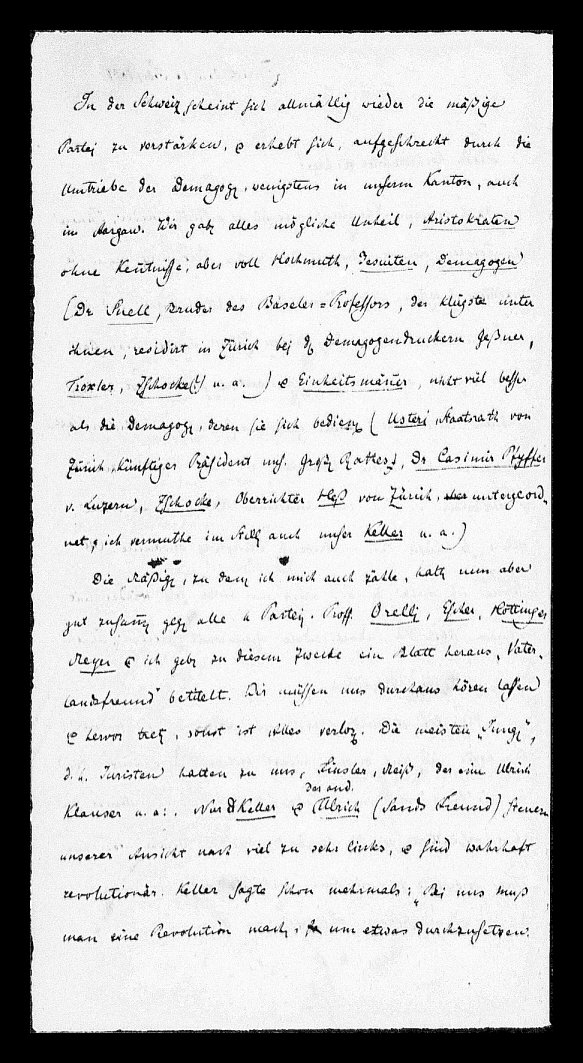 In der Schweiz scheint sich allmählig wieder die mäßige
Partei zu verstärken, & erhebt sich, aufgeschreckt durch die
Umtriebe der Demagogen, wenigstens in unserm Kanton, auch
im Aargau. Wir haben alles mögliche Unheil, Aristokraten
ohne Kentnisse, aber voll Hochmuth, Jesuiten, Demagogen
(Dr Snell, Bruder des Baseler=Professors, der klügste unter
ihnen, residirt in Zürich bei den Demagogendruckern Geßner,
Troxler, Zschocke(?) u. a.) & Einheitsmäner, nicht viel besser
als die Demagogen, deren sie sich bedienen (Usteri, Staatsrath von
Zürich, künftiger Präsident uns. Großen Rathes), Dr Casimir Pfyffer
v. Luzern, Zschocke, Oberrichter Heß von Zürich, untergeord-
net, & ich vermuthe im Stillen auch unser Keller u. a.)
Die Mäßigen, zu denen ich mich auch zähle, halten nun aber
gut zusammen gegen alle 4 Parteien. Proff. Orelli, Escher, Hottinger
Meyer & ich geben zu diesem Zwecke ein Blatt heraus, „Vater-
landsfreund" betitelt. Wir müssen uns durchaus hören lassen
& hervor treten, sonst ist Alles verloren. Die meisten „Jungen",
d. h. Juristen halten zu uns, Finsler, Meiß, der eine Ulrich
Klauser u. a. Nur Keller & der and. Ulrich (Sands Freund) steuern
unserer Ansicht nach viel zu sehr links, & sind wahrhaft
revolutionär. Keller sagte schon mehrmals: „Bei uns muß
man eine Revolution machen, um etwas durchzusetzen.